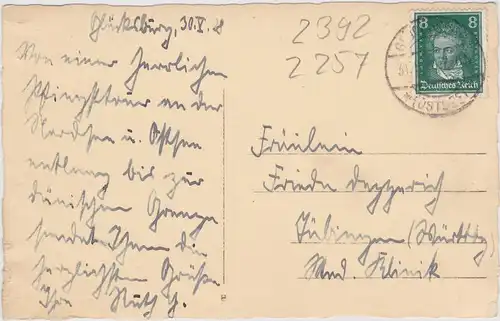 Glücksburg, 30.V.28
Von einer herrlichen
Pfingsttour an der
Nordsee u. Ostsee
entlang bis zur
dänischen Grenze
sendet Ihnen die
herzlichsten Grüße
Ihre Ruth H.
2392
2257
8 8
Deutsches Reich
(OSTSEE)
Fräulein
Frieda
Tübingen (Württbg)
Med. Klinik